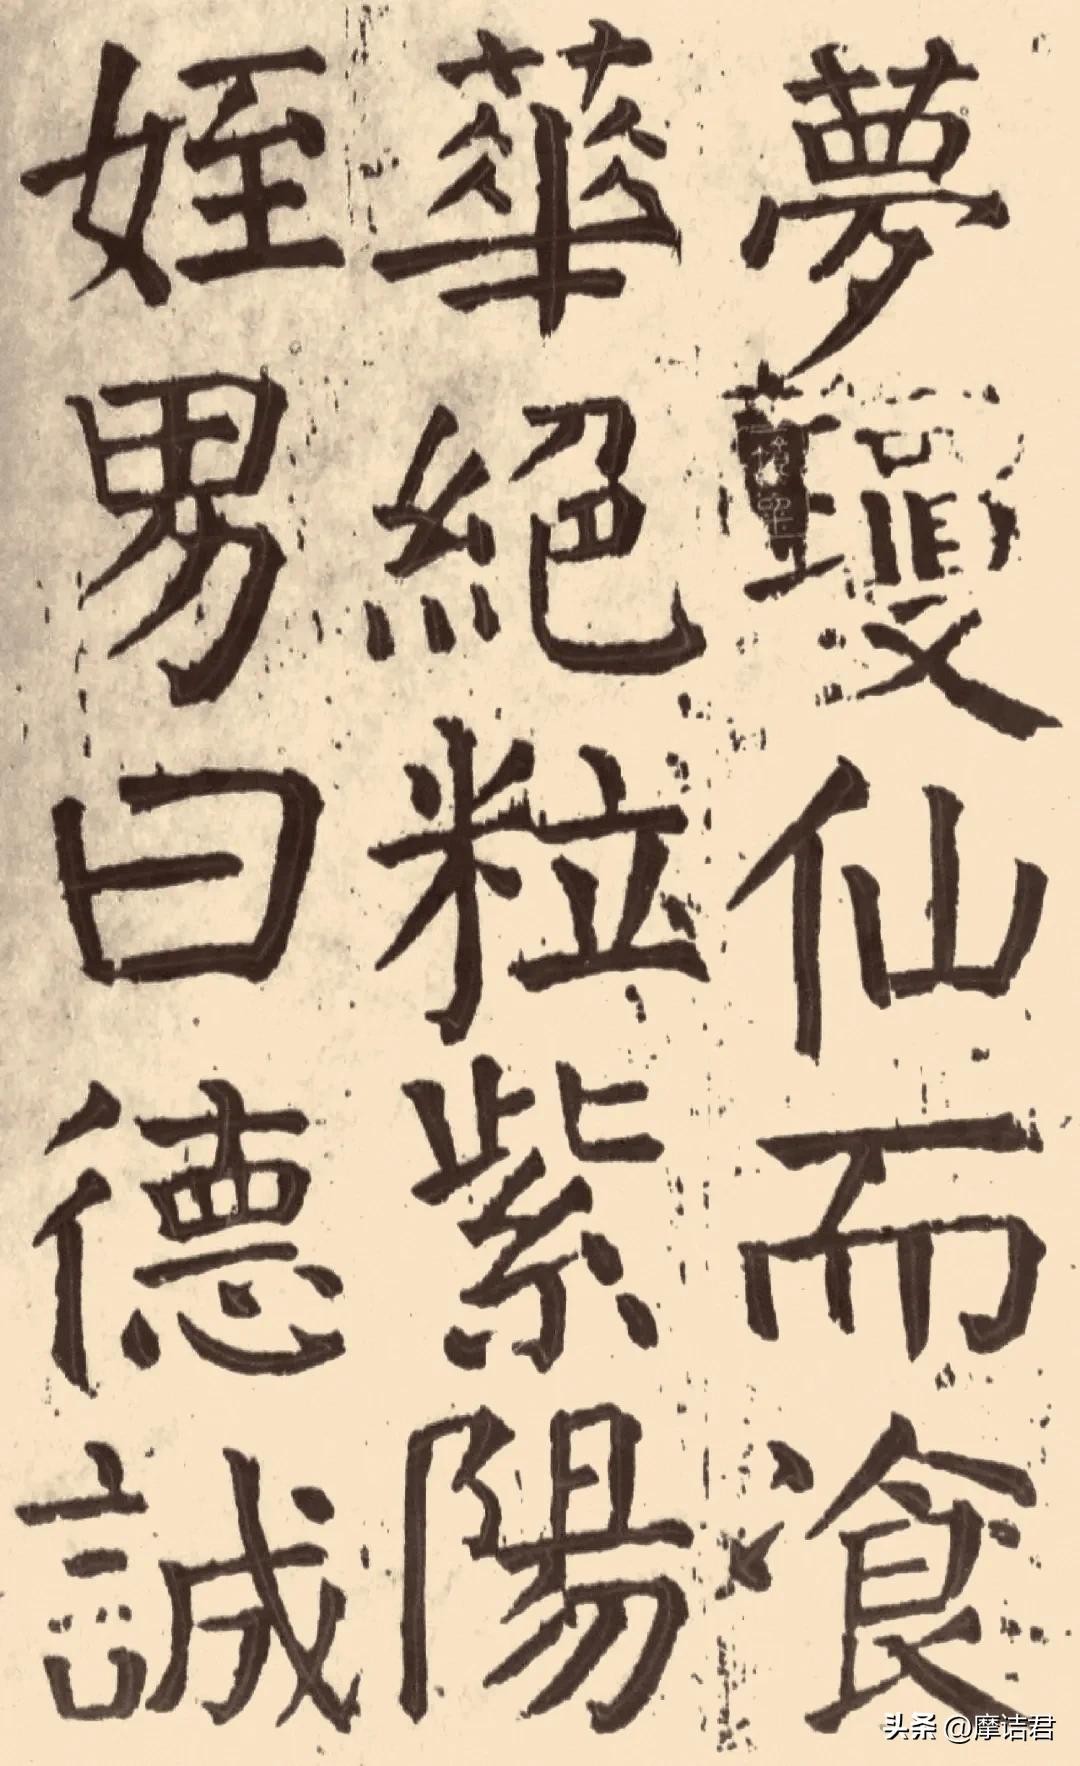 夢瓊仙而飡
華絕粒紫陽
姪男曰德誠
头条 @摩诘君